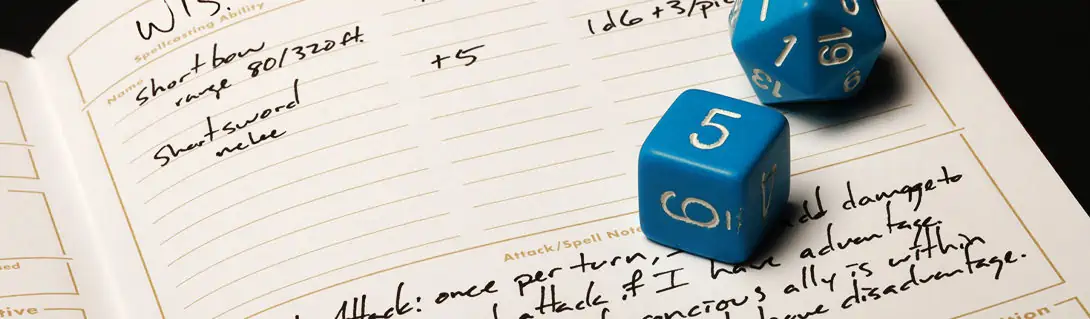 WIS.
Spellcasting Ability
Name
shortbow
range 80/320 ft.
+5
1d6 +3/pie
shortsword
melee
1
1
19
13
9
5
6
4
Attack/Spell Note
Attack: once per turn, add damage to
attack if I have advantage.
conscious ally is within
have disadvantage.
tive